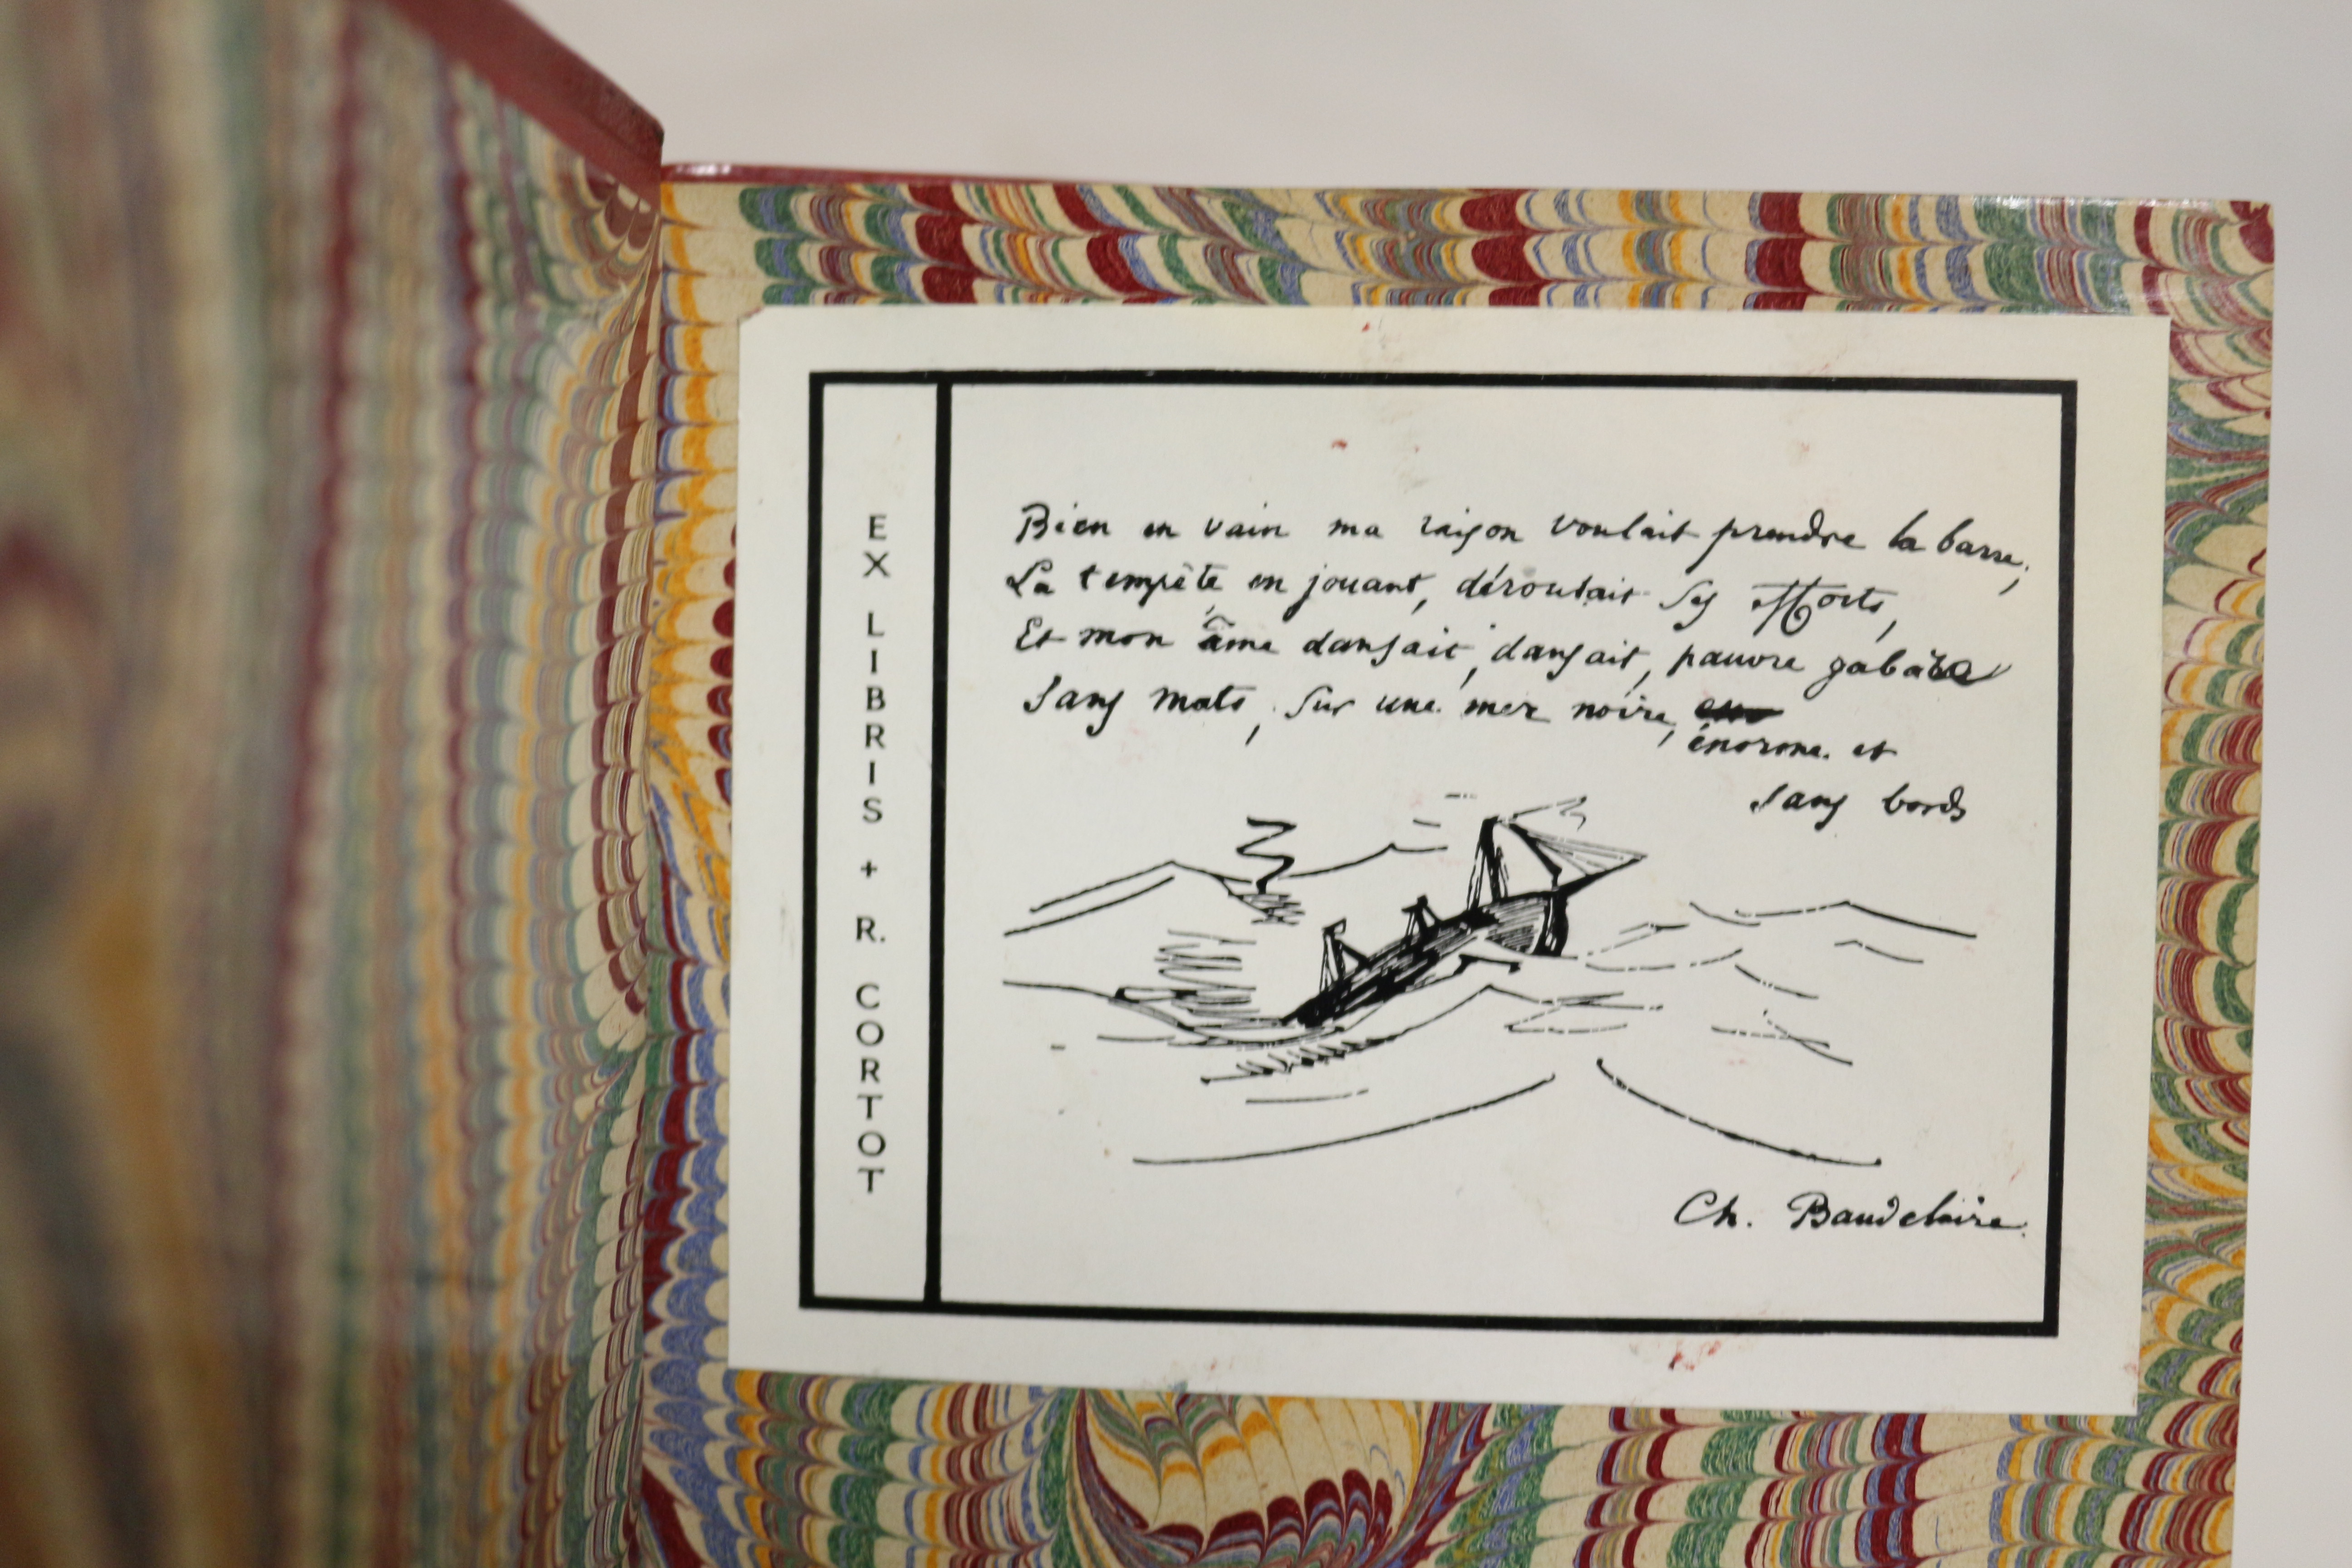 EX LIBRIS + R. CORTOT
Bien en vain ma raison voulait prendre la barre;
La tempête en jouant, déroutait ses efforts,
Et mon âme dansait, dansait, pauvre gabare
Sans mats, sur une mer noire,
énorme et
sans bords
Ch. Baudelaire.